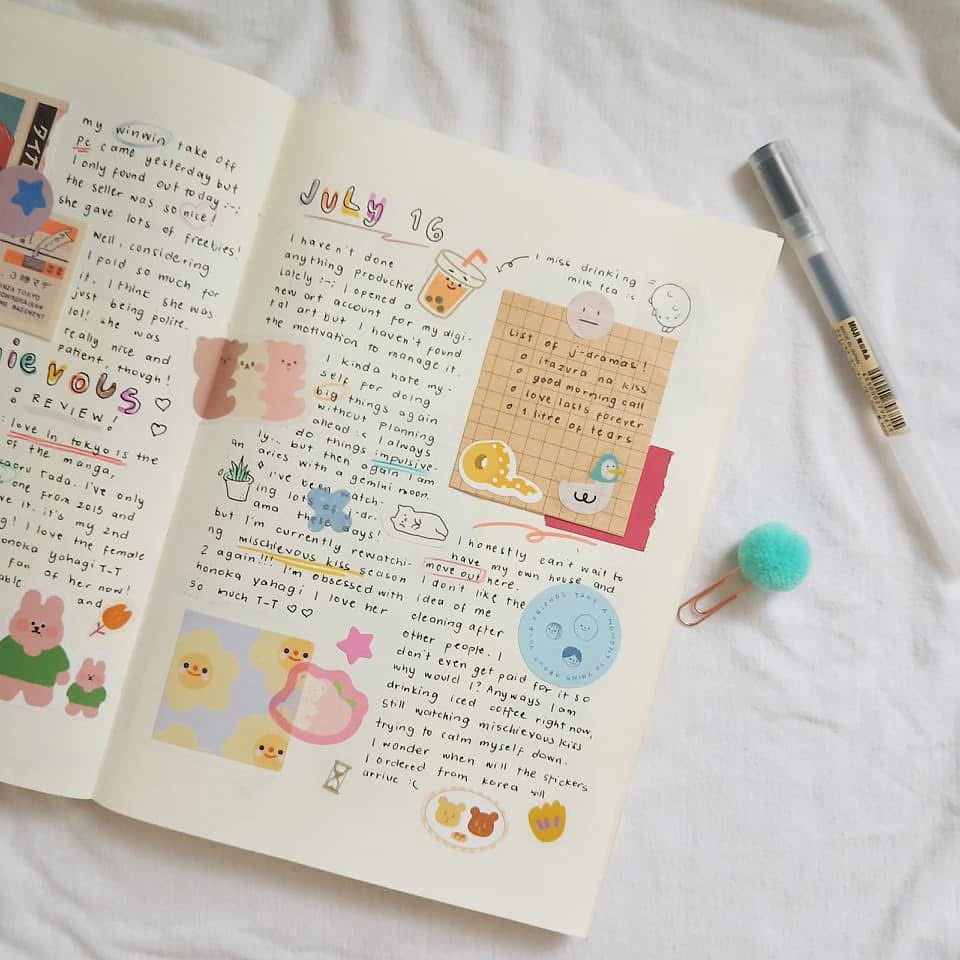 my winwin take off
pc came yesterday but
I only found out today :-;
the seller was so nice!
she gave lots of freebies!
Well, considering
I paid so much for
it, I think she was
just being polite.
lol! she was
really nice and
patient, though!
ievous
REVIEW!
: love in tokyo is the
of the manga,
aoru tada. I've only
one from 2015 and
ve it. it's my 2nd
g! I love the female
onoka yahagi T-T
fan of her now!
able.
and
タイガ
TOKYO
JULY 16
I haven't done
anything productive
lately :-; I opened a
new art account for my digi-
tal art but I haven't found
the motivation to manage it.
I kinda hate my-
self for doing
big things again
without planning
ahead :c I always
do things impulsive-
ly... but then again I am
an aries with a gemini moon.
I've been watch-
ing lots of j-dr-
ama these days!
but I'm currently rewatchi-
ng mischievous kiss season
2 again!!! I'm obsessed with
honoka yahagi I love her
so much T-T
I miss drinking
milk tea :c
List of j-dramas!
itazura na kiss
good morning call
love lasts forever
1 litre of tears
I honestly can't wait to
have my own house and
move out here.
I don't like the
idea of me
cleaning after
other people. I
don't even get paid for it so
why would I? Anyways I am
drinking iced coffee right now,
still watching mischievous kiss
trying to calm myself down.
I wonder when will the stickers
I ordered from korea will
arrive :c
TAKE A MOMENT TO THINK ABOUT YOUR FRIENDS
MUJI